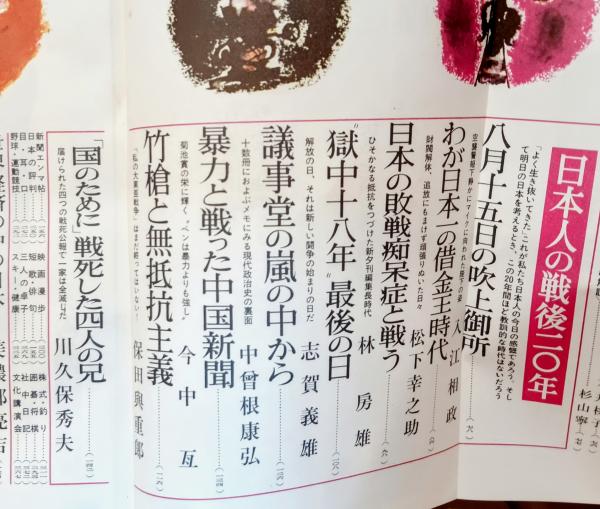 日本人の戦後二〇年
「よく生き抜いてきた」これが私たち日本人の今日の感慨であろう。そし
て明日の日本を考えるとき、この20年間ほど教訓的な時代はないだろう
八月十五日の吹上御所
空襲警報下静かにマイクに向われた陛下の姿
入江相政
わが日本一の借金王時代
財閥解体、追放にもまけず頑張りぬいた日々
松下幸之助
日本の敗戦痴呆症と戦う
ひそかなる抵抗をつづけた新夕刊編集長時代
林房雄
"獄中十八年"最後の日
解放の日、それは新しい闘争の始まりの日だ
志賀義雄
議事堂の嵐の中から
十数冊におよぶメモにみる現代政治史の裏面
中曾根康弘
暴力と戦った中国新聞
菊池寛の栄に輝く"ペンは暴力よりも強し"
今中亙
竹槍と無抵抗主義
「私の大東亜戦争」はまだ終ってはいない!
保田與重郎
「国のために」戦死した四人の兄
届けられた四つの戦死公報で一家は全滅した
川久保秀夫
新聞エンマ帖
日本の評判
目・耳・口
野球・運動競技
映画漫歩
短歌・俳句
三人の卓子
スキー・健康
株式・釣り
囲碁・将棋
社中日記
文化講演会
杉山寧